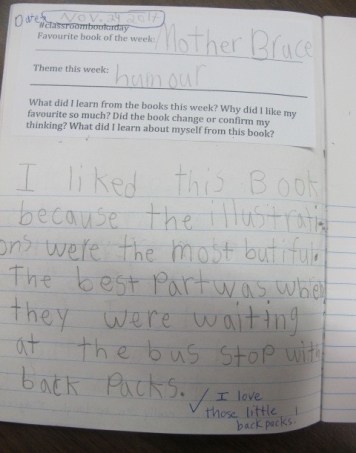 Date: Nov. 24 2017
#classroombookaday
Favourite book of the week: Mother Bruce
Theme this week: humour
What did I learn from the books this week? Why did I like my
favourite so much? Did the book change or confirm my
thinking? What did I learn about myself from this book?
I liked this Book
because the illustrati-
ons were the most butiful.
The best part was when
they were waiting
at the bus stop with
back packs.
✓ I love
those little
backpacks!